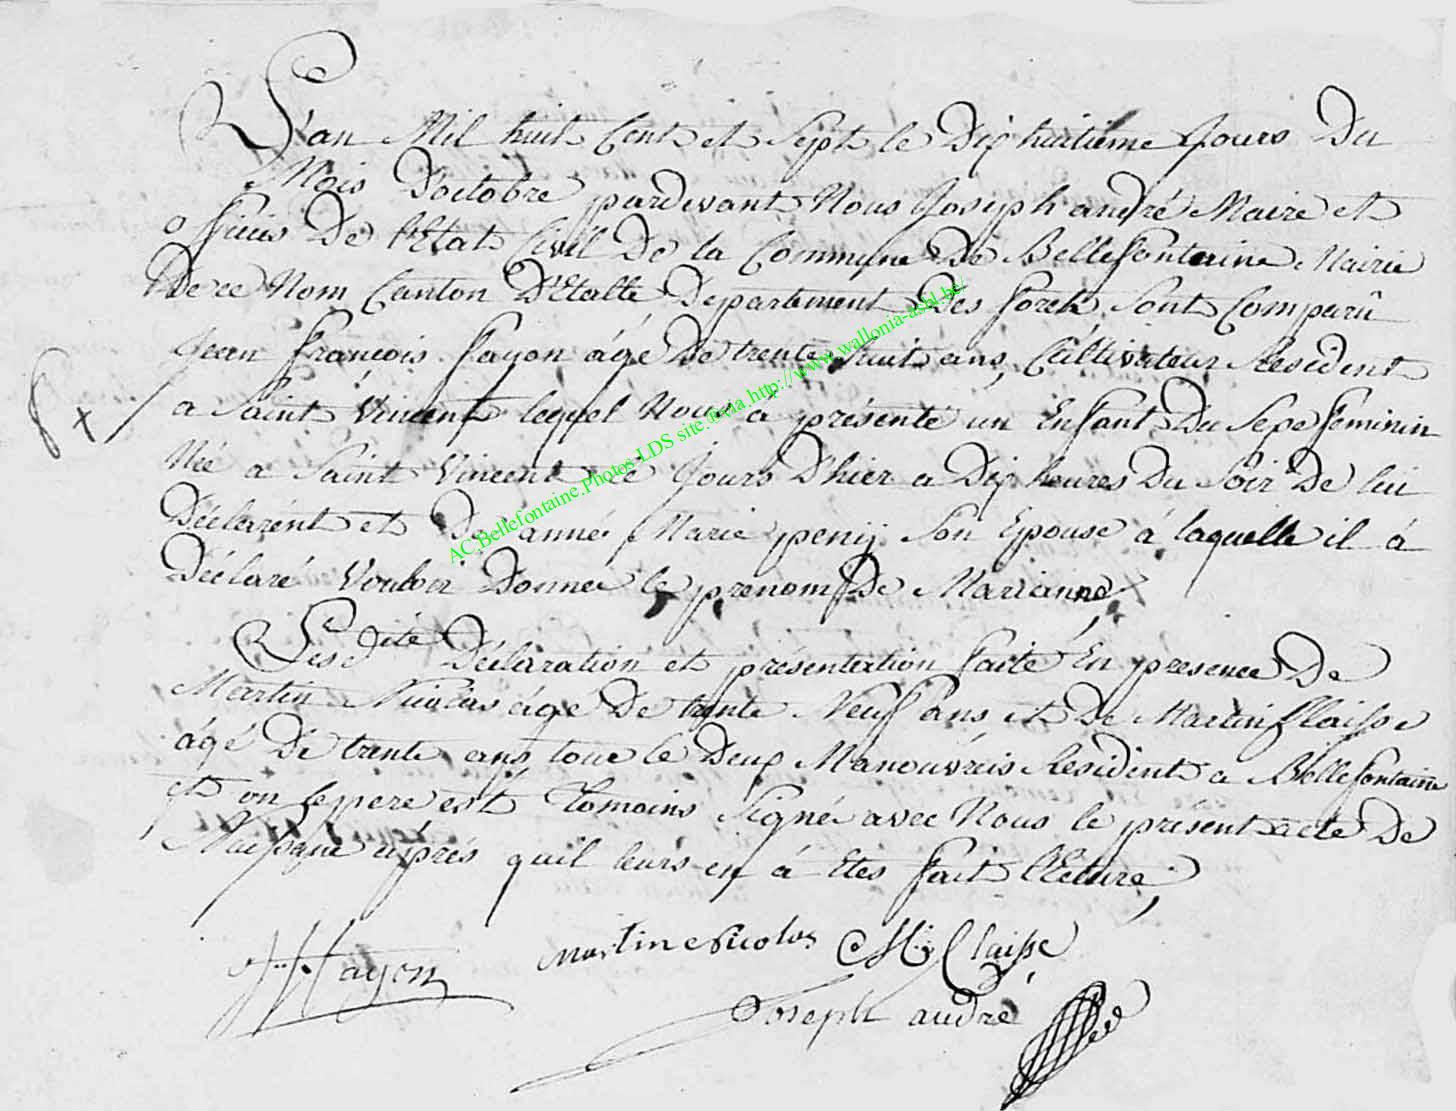 L'an Mil huit Cent et Sept le Dix huitieme Jours Du
Mois D'octobre pardevant Nous Joseph andré Maire et
officier De l'Etat Civil De la Commune De Bellefontaine Mairie
De ce Nom Canton D'Etalle Departement Des forets Sont Comparû
Jean françois fayon âgé De trente huit ans, Cultivateur Resident
a Saint Vincent lequel Nous a présenté un Enfant Du Sexe feminin
Née a Saint Vincent le Jours D'hier a Dix heures Du Soir De lui
Déclarent et De anne Marie peny Son Epouse à laquelle il á
Déclaré Vouloir Donner le prenom De Marianne,
Lesdite Déclaration et présentation faite En presence De
Martin Nicolas âgé De trente Neuf ans et De Martin Claisse
âgé De trente ans tous le Deux Manouvreis Resident a Bellefontaine
et on le pere est Tomoins Signé avec Nous le présent acte De
Naissane aprés quil leurs en á Etes fait lecture,
fayon
Martin Nicolas
M. Claisse
Joseph andré
AC.Bellefontaine.Photos-LDS site.Tvia.http://www.wallonia-asbl.be/